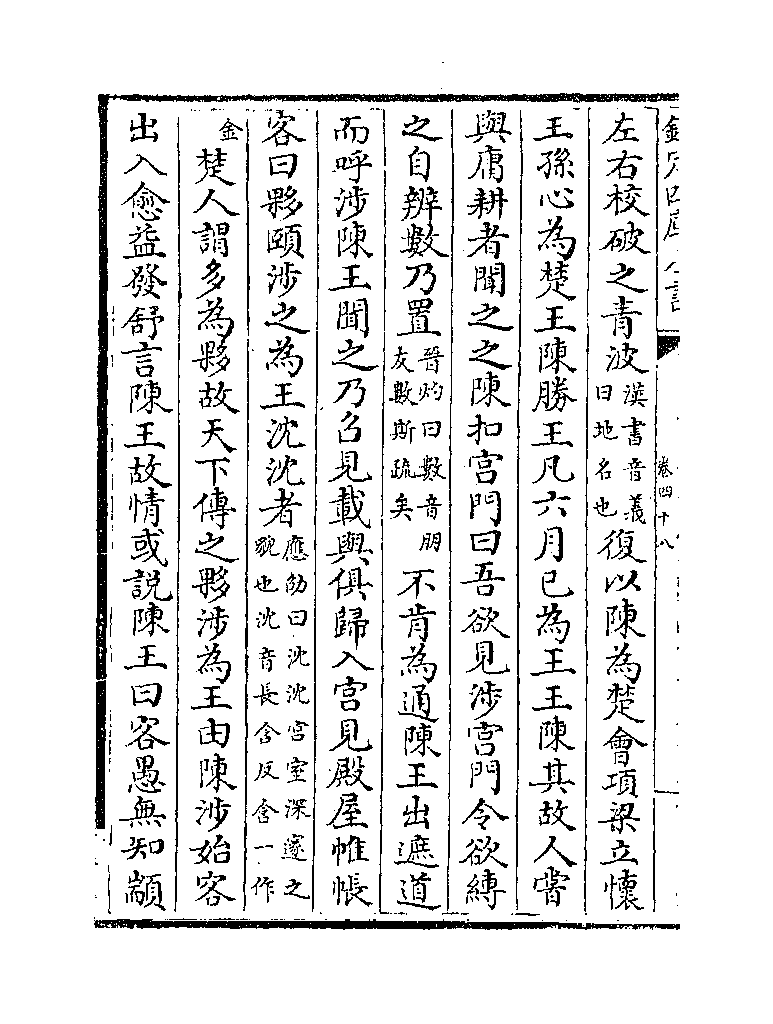 欽定四庫全書
卷四十八
左右校破之青波漢書音義曰地名也復以陳為楚會項梁立懷
王孫心為楚王陳勝王凡六月已為王王陳其故人嘗
與庸耕者聞之之陳扣宫門曰吾欲見涉宫門令欲縛
之自辨數乃置晉灼曰數音朋友數斯疏矣不肯為通陳王出遮道
而呼涉陳王聞之乃召見載與俱歸入宫見殿屋帷帳
客曰夥頤涉之為王沈沈者應劭曰沈沈宫室深邃之貌也沈音長含反含一作
金楚人謂多為夥故天下傳之夥涉為王由陳涉始客
出入愈益發舒言陳王故情或説陳王曰客愚無知顓